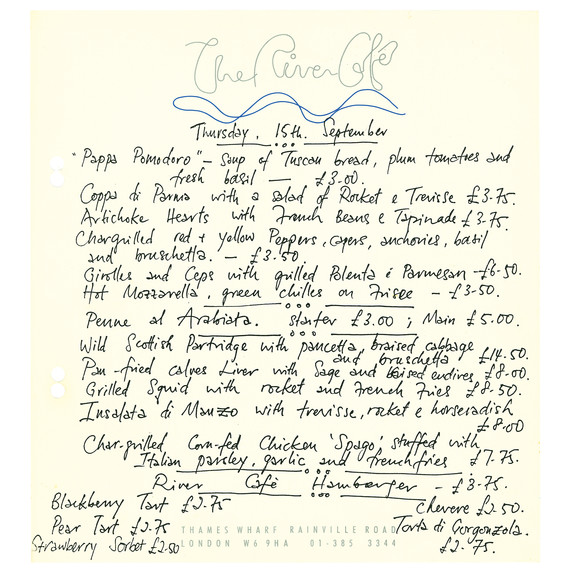 The River Café
Thursday, 15th. September
"Pappa Pomodoro" – Soup of Tuscan bread, plum tomatoes and
fresh basil — £3.00.
Coppa di Parma with a salad of Rocket e Trevisse £3.75.
Artichoke Hearts with French Beans e Tapinade £3.75.
Chargrilled red + yellow Peppers, capers, anchovies, basil
and bruschetta. – £3.50
Girolles and Ceps with grilled Polenta é Parmesan – £6.50.
Hot Mozzarella, green chilles on Frisee – £3.50.
Penne al Arabiata. starter £3.00 ; Main £5.00.
Wild Scottish Partridge with pancetta, braised cabbage
and bruschetta £14.50.
Pan-fried calves Liver with Sage and braised endives £8.00
Grilled Squid with rocket and French Fries £8.50.
Insalata di Manzo with trevisse, rocket e horseradish
£8.00
Char-grilled Corn-fed Chicken 'Spago' stuffed with
Italian parsley, garlic and frenchfries £7.75.
River Café Hamberger – £3.75.
Blackberry Tart £2.75
Chevere £2.50.
Pear Tart £2.75
THAMES WHARF RAINVILLE ROAD
Torta di Gorgonzola.
Strawberry Sorbet £2.50
LONDON W6 9HA 01-385 3344
£2.75.